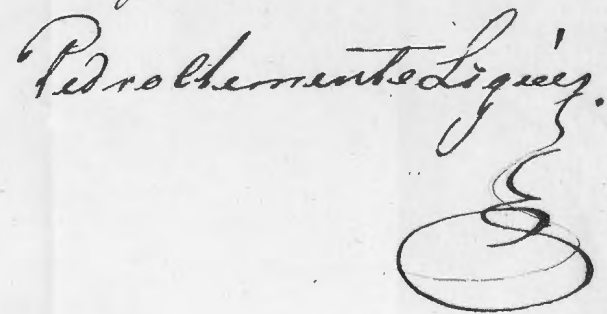 Pedro Clemente Ligués.